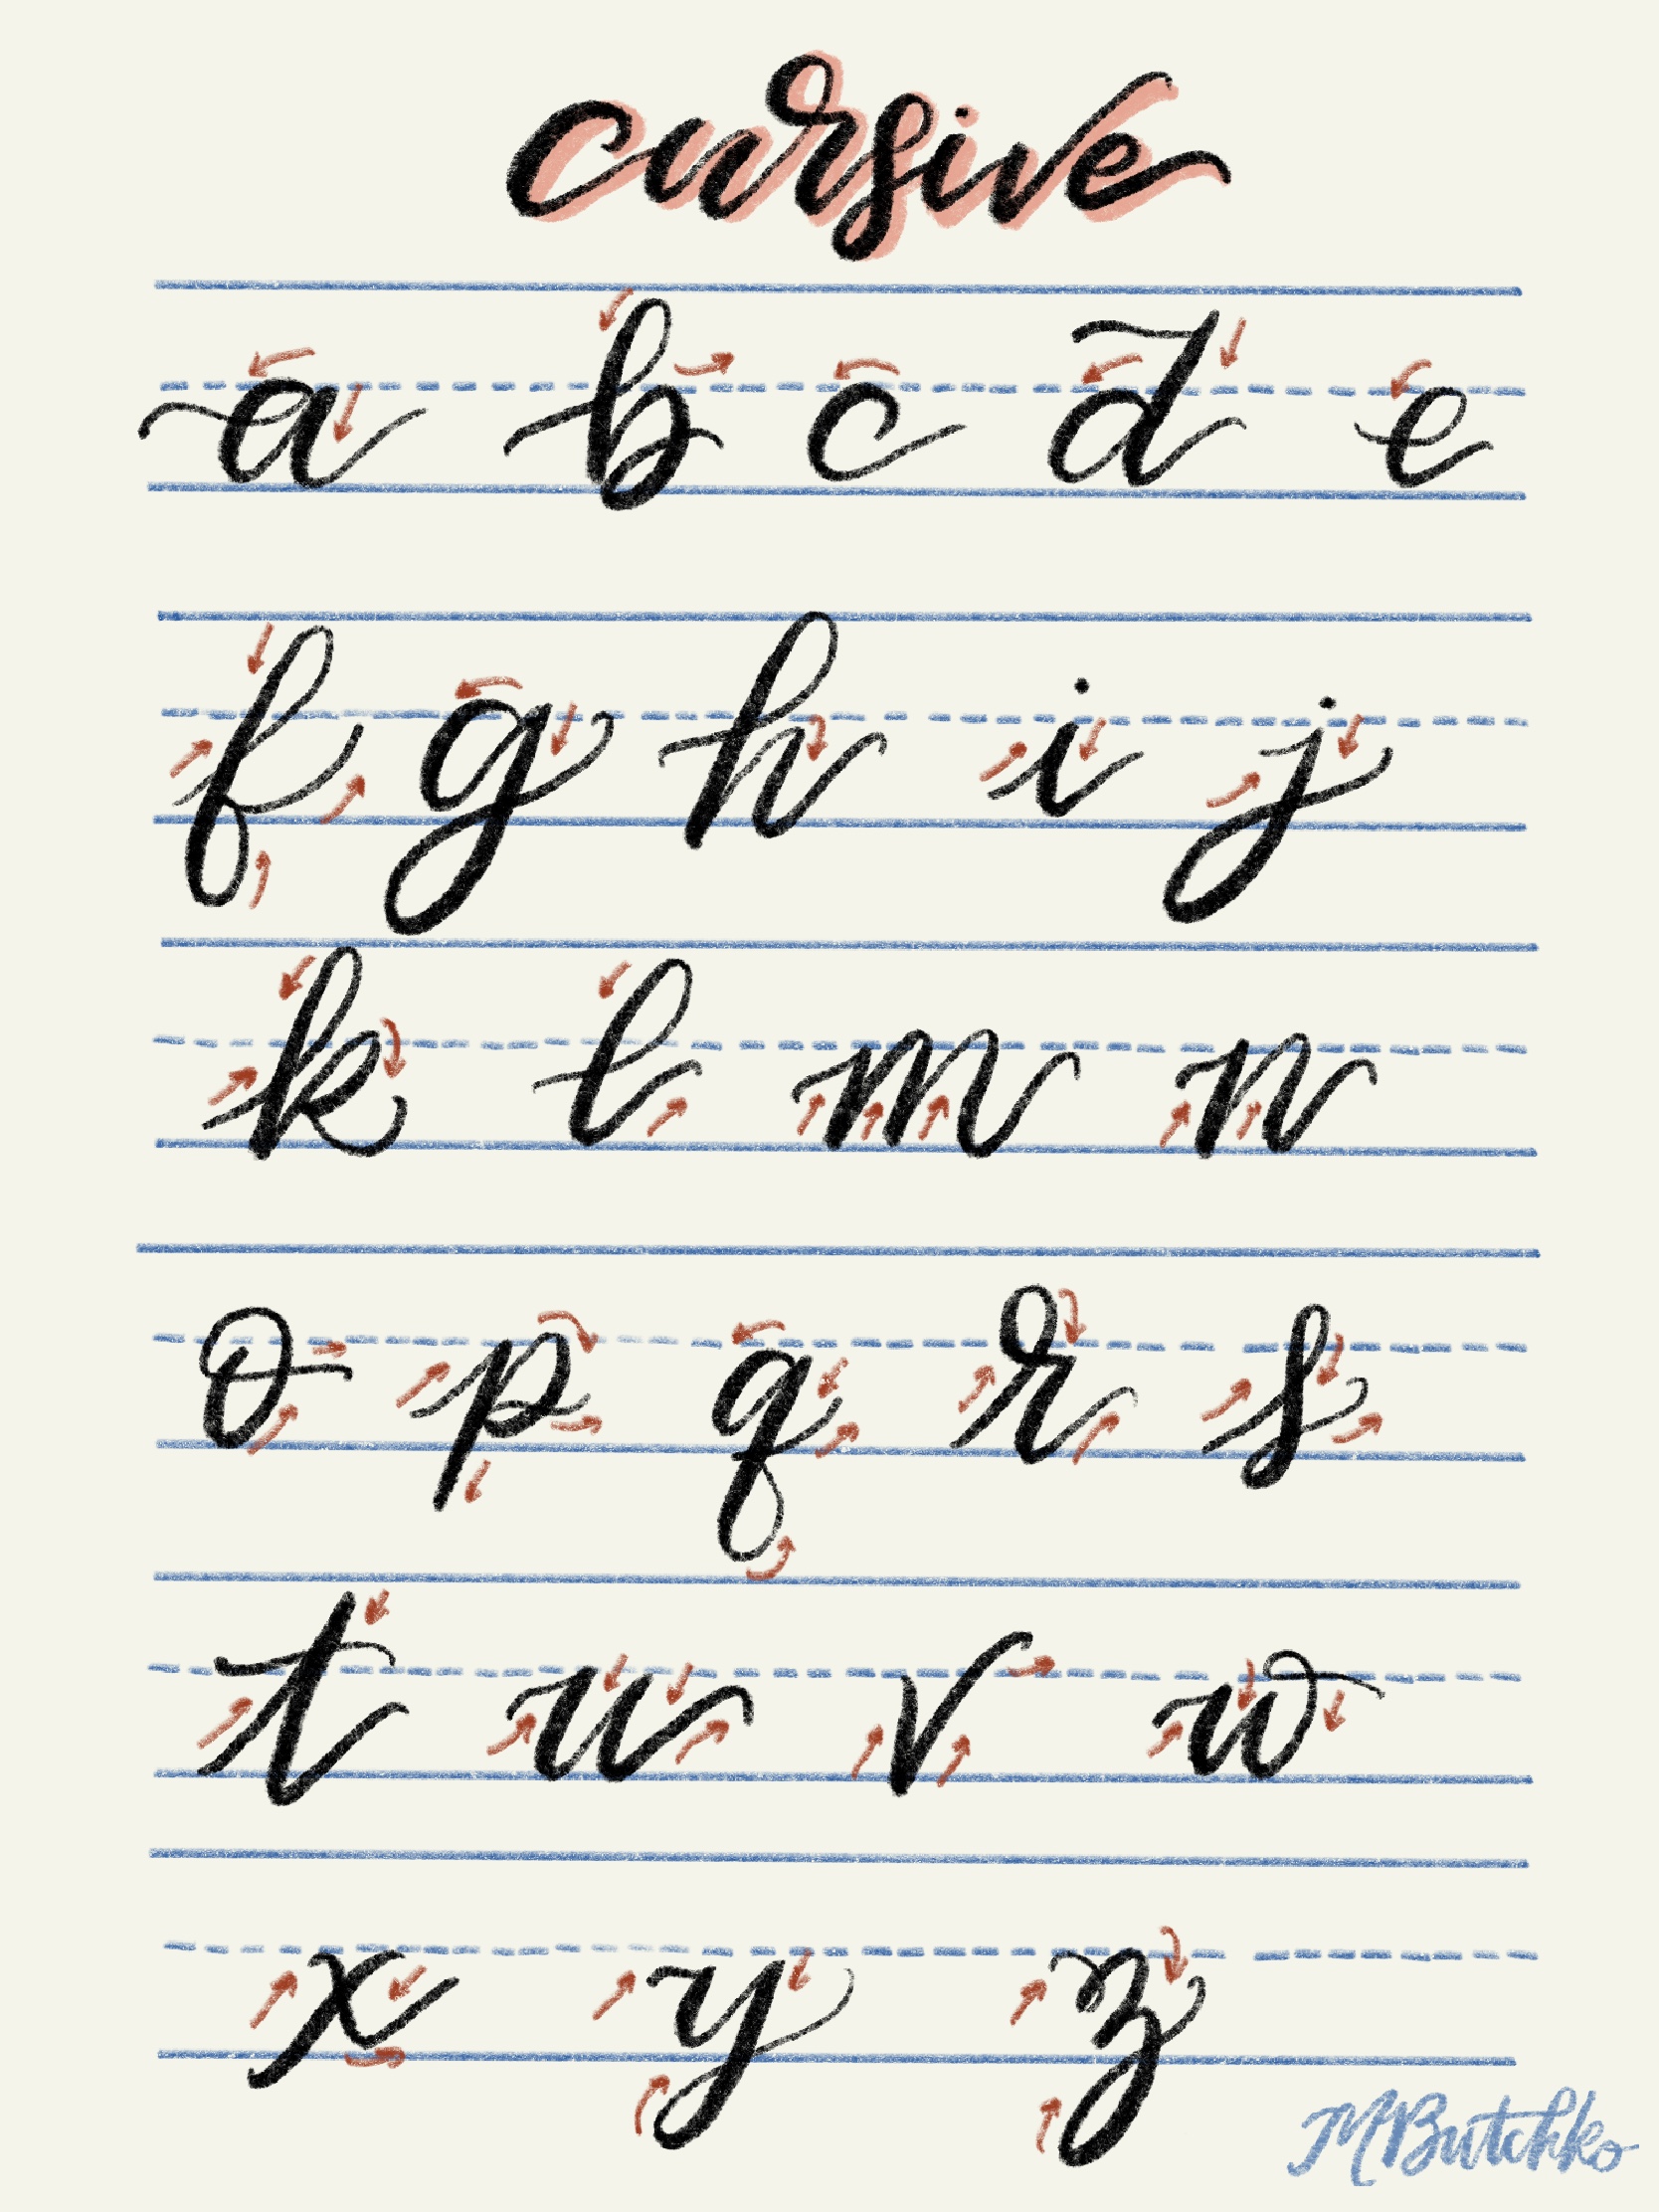 cursive
a b c d e
f g h i j
k l m n
o p q r s
t u v w
x y z
MButchko